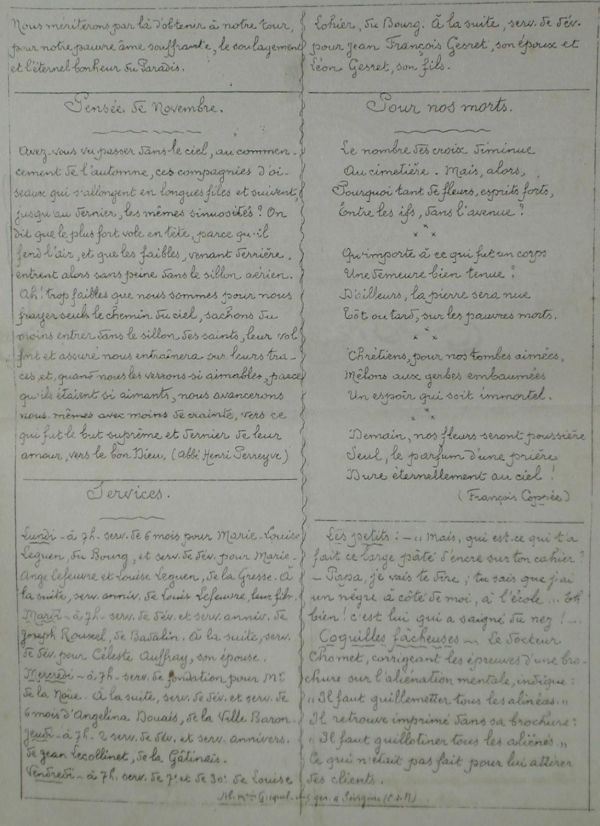 Nous mériterons par là d'obtenir à notre tour,
pour notre pauvre âme souffrante, le soulagement
et l'éternel bonheur du Paradis.
Pensée de Novembre.
Avez-vous vu passer dans le ciel, au commen-
cement de l'automne, ces compagnies d'oi-
seaux qui s'allongent en longues files et suivent,
jusqu'au dernier, les mêmes sinuosités ? On
dit que le plus fort vole en tête, parce qu'il
fend l'air, et que les faibles, venant derrière,
entrent alors sans peine dans le sillon aérien.
Ah ! trop faibles que nous sommes pour nous
frayer seuls le chemin du ciel, sachons du
moins entrer dans le sillon des saints, leur vol
fort et assuré nous entraînera sur leurs tra-
ces et, quand nous les verrons si aimables, parce
qu'ils étaient si aimants, nous avancerons
nous-mêmes avec moins de crainte, vers ce
qui fut le but suprême et dernier de leur
amour, vers le bon Dieu. (Abbé Henri Perreyve)
Services.
Lundi - à 7h. serv. de 6 mois pour Marie-Louise
Leguen, du Bourg, et serv. de dév. pour Marie-
Ange Lefeuvre et Louise Leguen, de la Gresse. À
la suite, serv. anniv. de Louis Lefeuvre, leur fils.
Mardi - à 7h. serv. de dév. et serv. anniv. de
Joseph Rouxel, de Badalin. À la suite, serv.
de dév. pour Céleste Auffray, son épouse.
Mercredi - à 7h. serv. de fondation pour Mr
de la Noüe. À la suite, serv. de dév. et serv. de
6 mois d'Angelina Douais, de la Ville Baron.
Jeudi - à 7h. 2 serv. de dév. et serv. annivers.
de Jean Lecollinet, de la Gâtinais.
Vendredi - à 7h. serv. de 7e et de 30e de Louise
Lohier, du Bourg. À la suite, serv. de dév.
pour Jean François Gesret, son époux et
Léon Gesret, son fils.
Pour nos morts.
Le nombre des croix diminue
Au cimetière. Mais, alors,
Pourquoi tant de fleurs, esprits forts,
Entre les ifs, dans l'avenue ?
Qu'importe à ce qui fut un corps
Une demeure bien tenue ?
D'ailleurs, la pierre sera nue
Tôt ou tard, sur les pauvres morts.
Chrétiens, pour nos tombes aimées,
Mêlons aux gerbes embaumées
Un espoir qui soit immortel.
Demain, nos fleurs seront poussière
Seul, le parfum d'une prière
Dure éternellement au ciel !
(François Coppée)
Les petits : - „ Mais, qui est-ce qui t'a
fait ce large pâté d'encre sur ton cahier ?
- Papa, je vais te dire ; tu sais que j'ai
un nègre à côté de moi, à l'école ... Eh
bien ! c'est lui qui a saigné du nez ! ...
Coquilles fâcheuses - Le docteur
Chomet, corrigeant les épreuves d'une bro-
chure sur l'aliénation mentale, indique :
„ Il faut guillemetter tous les alinéas. „
Il retrouve imprimé dans sa brochure :
„ Il faut guillotiner tous les aliénés. „
Ce qui n'était pas fait pour lui attirer
des clients.